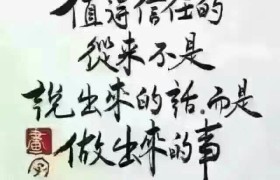 值得信任的
從来不是
說出來的話,而是
做出來的事